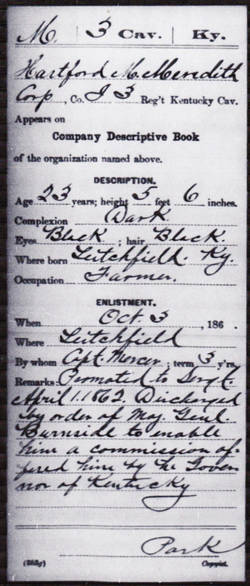 M. | 3 Cav. | Ky.
Hartford M. Meredith
Corp, Co. I 3 Reg't Kentucky Cav.
Appears on
Company Descriptive Book
of the organization named above.
DESCRIPTION.
Age 23 years; height 5 feet 6 inches.
Complexion Dark
Eyes Black; hair Black.
Where born Litchfield Ky.
Occupation Farmer.
ENLISTMENT.
When Oct. 3, 186 .
Where Litchfield
By whom Capt. Mercer; term 3 y'rs.
Remarks: Promoted to Sergt.
April 1. 1862. Discharged
by order of Maj. Genl.
Burnside to enable
him a commission of-
fered him by the Gover-
nor of Kentucky
Park
Copyist.